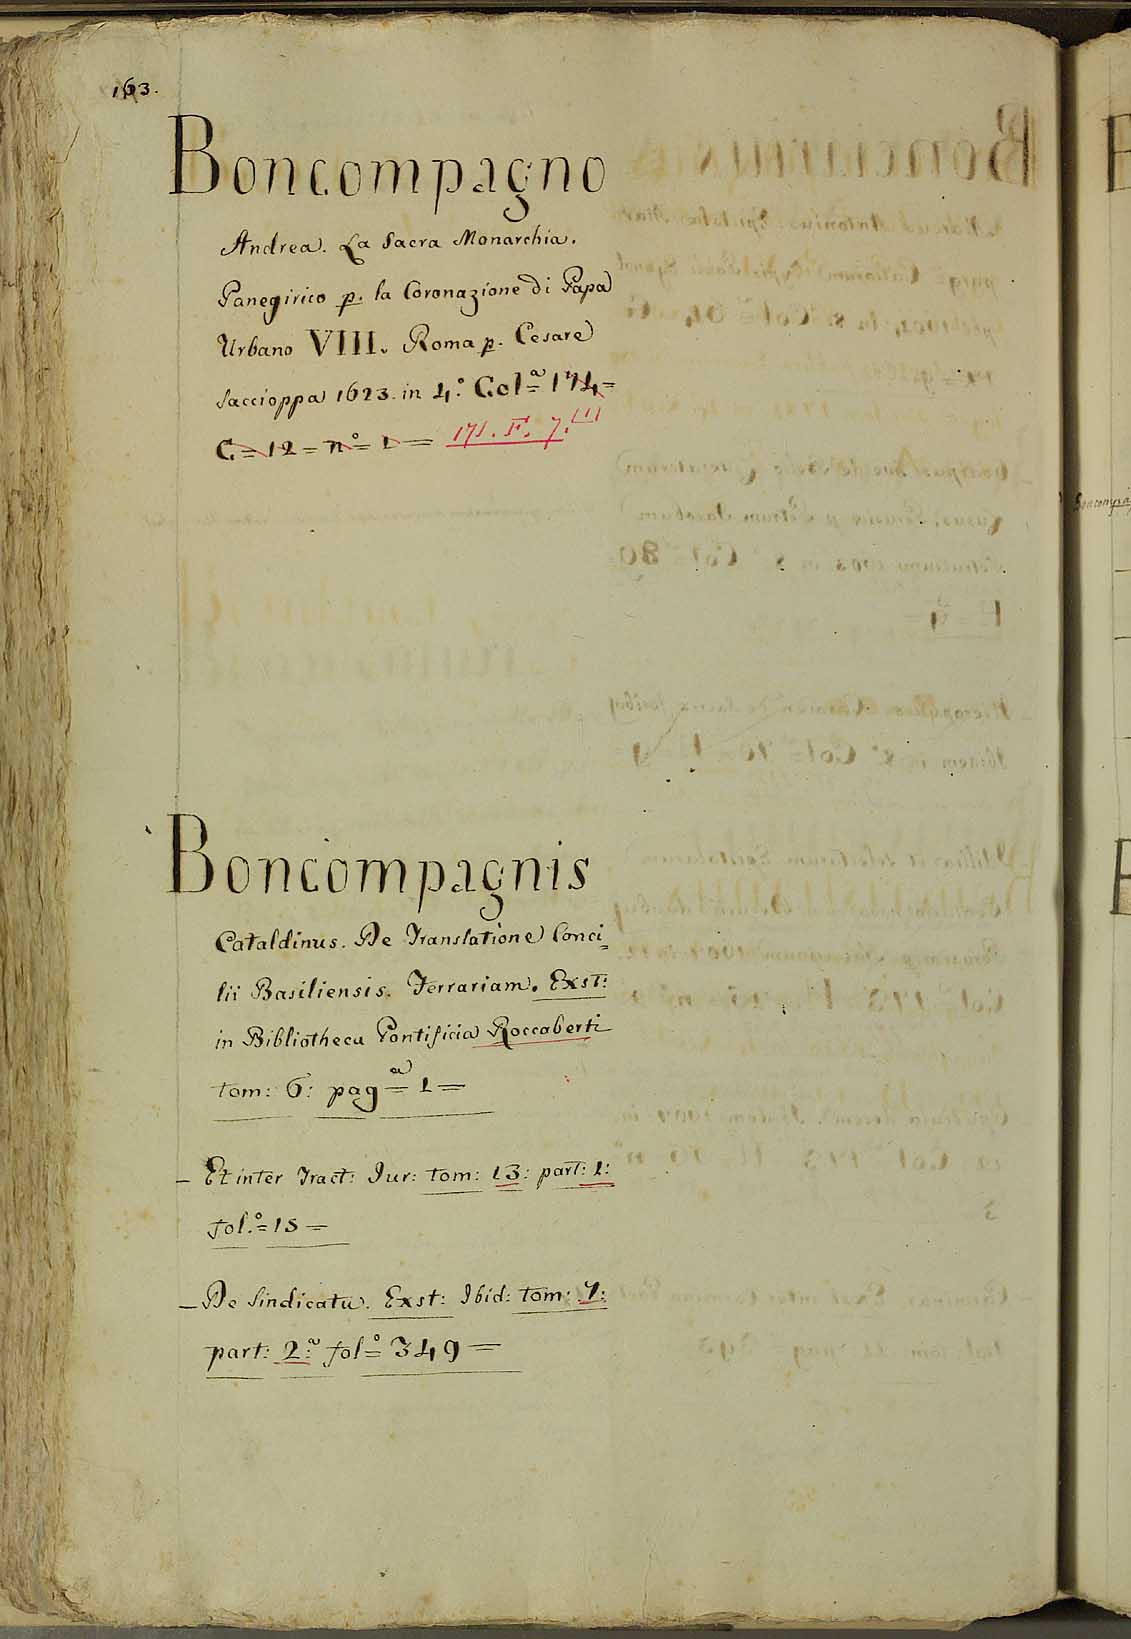 163.
Boncompagno
Andrea. La Sacra Monarchia.
Panegirico p. la Coronazione di Papa
Urbano VIII. Roma p. Cesare
Saccioppa 1623. in 4.º Col=ª 174=
C=12=nº=1= 171. F. 7.(1)
Boncompagnis
Cataldinus. De Translatione Conci=
lii Basiliensis. Ferrariam. Exst:
in Bibliotheca Pontificia Roccaberti
tom: 6: pag=ª 1=
– Et inter Tract: Iur: tom: 13: part: 1:
fol.º=15=
– De Sindicatu. Exst: Ibid: tom: 7:
part: 2:ª fol=º 349=